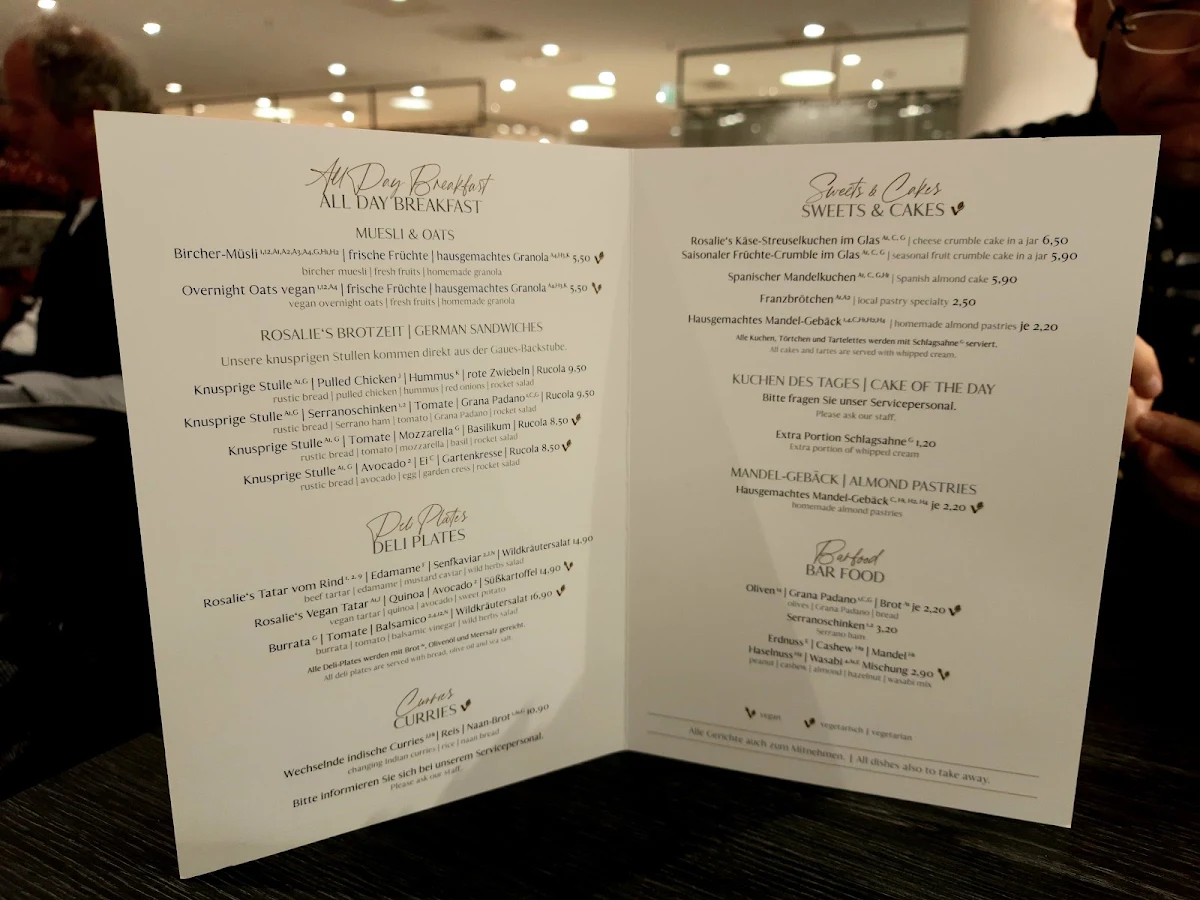 All Day Breakfast
ALL DAY BREAKFAST
MUESLI & OATS
Bircher-Müsli 1,12,A1,A2,A3,A4,G,H1,H2 | frische Früchte | hausgemachtes Granola A4,H3,K 5,50
bircher muesli | fresh fruits | homemade granola
Overnight Oats vegan 1,12,A4 | frische Früchte | hausgemachtes Granola A4,H3,K 5,50
vegan overnight oats | fresh fruits | homemade granola
ROSALIE'S BROTZEIT | GERMAN SANDWICHES
Unsere knusprigen Stullen kommen direkt aus der Gaues-Backstube.
Knusprige Stulle A1,G | Pulled Chicken J | Hummus K | rote Zwiebeln | Rucola 9.50
rustic bread | pulled chicken | hummus | red onions | rocket salad
Knusprige Stulle A1,G | Serranoschinken 1,2 | Tomate | Grana Padano 1,C,G | Rucola 9.50
rustic bread | Serrano ham | tomato | Grana Padano | rocket salad
Knusprige Stulle A1, G | Tomate | Mozzarella G | Basilikum | Rucola 8.50
rustic bread | tomato | mozzarella | basil | rocket salad
Knusprige Stulle A1, G | Avocado 2 | Ei C | Gartenkresse | Rucola 8,50
rustic bread | avocado | egg | garden cress | rocket salad
Deli Plates
DELI PLATES
Rosalie's Tatar vom Rind 1, 2, 9 | Edamame F | Senfkaviar 2,J,N | Wildkräutersalat 14.90
beef tartar | edamame | mustard caviar | wild herbs salad
Rosalie's Vegan Tatar | Quinoa | Avocado 2 | Süßkartoffel 14,90
vegan tartar | quinoa | avocado | sweet potato
Burrata G | Tomate | Balsamico 2,4,12,N | Wildkräutersalat 16,90
burrata | tomato | balsamic vinegar | wild herbs salad
Alle Deli-Plates werden mit Brot, Olivenöl und Meersalz gereicht.
All deli plates are served with bread, olive oil and sea salt.
Curries
CURRIES
Wechselnde indische Curries | Reis | Naan-Brot 10,90
changing Indian curries | rice | naan bread
Bitte informieren Sie sich bei unserem Servicepersonal.
Please ask our staff.
Sweets & Cakes
SWEETS & CAKES
Rosalie's Käse-Streuselkuchen im Glas A1, C, G | cheese crumble cake in a jar 6,50
Saisonaler Früchte-Crumble im Glas A1, C, G | seasonal fruit crumble cake in a jar 5,90
Spanischer Mandelkuchen A1, C, G,H1 | Spanish almond cake 5,90
Franzbrötchen A1,A2 | local pastry specialty 2,50
Hausgemachtes Mandel-Gebäck | homemade almond pastries je 2,20
Alle Kuchen, Törtchen und Tartelettes werden mit Schlagsahne G serviert.
All cakes and tartes are served with whipped cream.
KUCHEN DES TAGES | CAKE OF THE DAY
Bitte fragen Sie unser Servicepersonal.
Please ask our staff.
Extra Portion Schlagsahne G 1,20
Extra portion of whipped cream
MANDEL-GEBÄCK | ALMOND PASTRIES
Hausgemachtes Mandel-Gebäck C, H1, H2, H4 je 2,20
homemade almond pastries
Barfood
BAR FOOD
Oliven | Grana Padano 1,C,G | Brot je 2,20
olives | Grana Padano | bread
Serranoschinken 1,2 3,20
Serrano ham
Erdnuss E | Cashew | Mandel
Haselnuss | Wasabi Mischung 2,90
peanut | cashew | almond | hazelnut | wasabi mix
vegan vegetarisch | vegetarian
Alle Gerichte auch zum Mitnehmen. | All dishes also to take away.